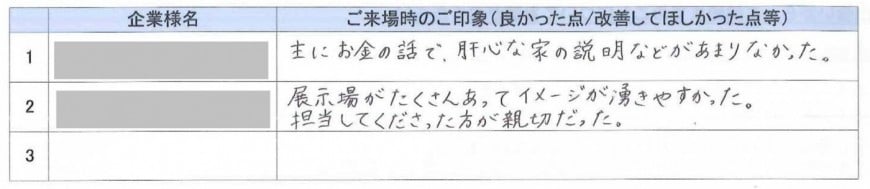 企業様名 ご来場時のご印象(良かった点/改善してほしかった点等)
1 主にお金の話で、肝心な家の説明などがあまりなかった。
2 展示場がたくさんあってイメージが湧きやすかった。
担当してくださった方が親切だった。
3